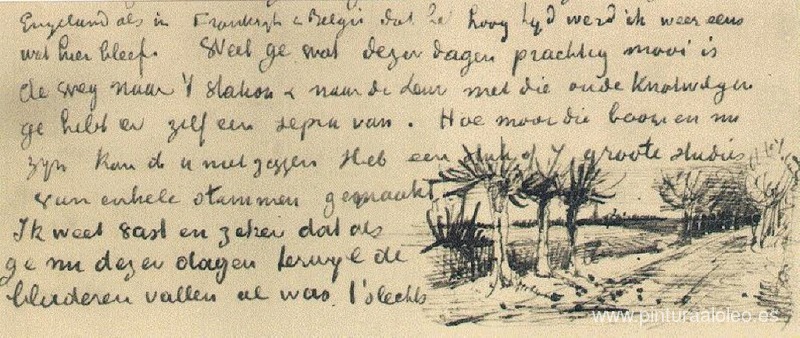 Engeland als in Frankrijk & België dat het hoog tijd werd ik weer eens
wat hier bleef. Weet ge wat dezer dagen prachtig mooi is
de weg naar 't station & naar de Leur met die oude Knotwilgen
ge hebt er zelf een sepia van. Hoe mooi die boomen nu
zijn kan ik u niet zeggen Heb een stuk of 7 groote studies
van enkele stammen gemaakt
Ik weet vast en zeker dat als
ge nu dezer dagen terwijl de
bladeren vallen al was 't slechts
www.pinturaaloleo.es